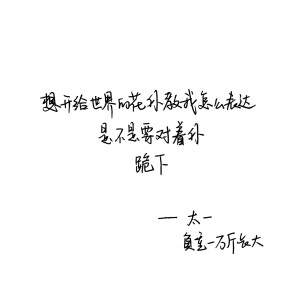 想开给世界的花你教我怎么表达
是不是要对着你
跪下
— 太一
负重一万斤长大